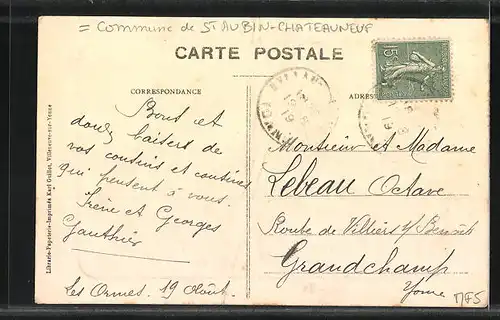 = COMMUNE de ST AUBIN-CHATEAUNEUF
CARTE POSTALE
CORRESPONDANCE
ADRES
15c
Bons et
doux baisers de
vos cousins et cousines
qui pensent à vous.
Irène et Georges
Gauthier
Les Ormes. 19 Août.
Monsieur et Madame
Lebeau Octave
Route de Villiers s/ Benoît
Grandchamp
Yonne
Librairie-Papeterie-Imprimerie Karl Guillot, Villeneuve-sur-Yonne